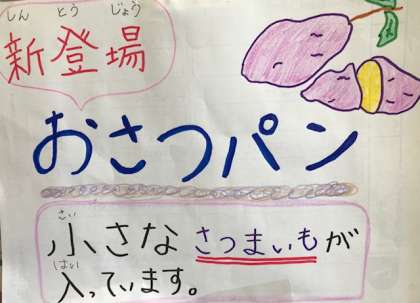 しん とう じょう
新登場
おさつパン
小さな さつまいもが
はい
入っています。